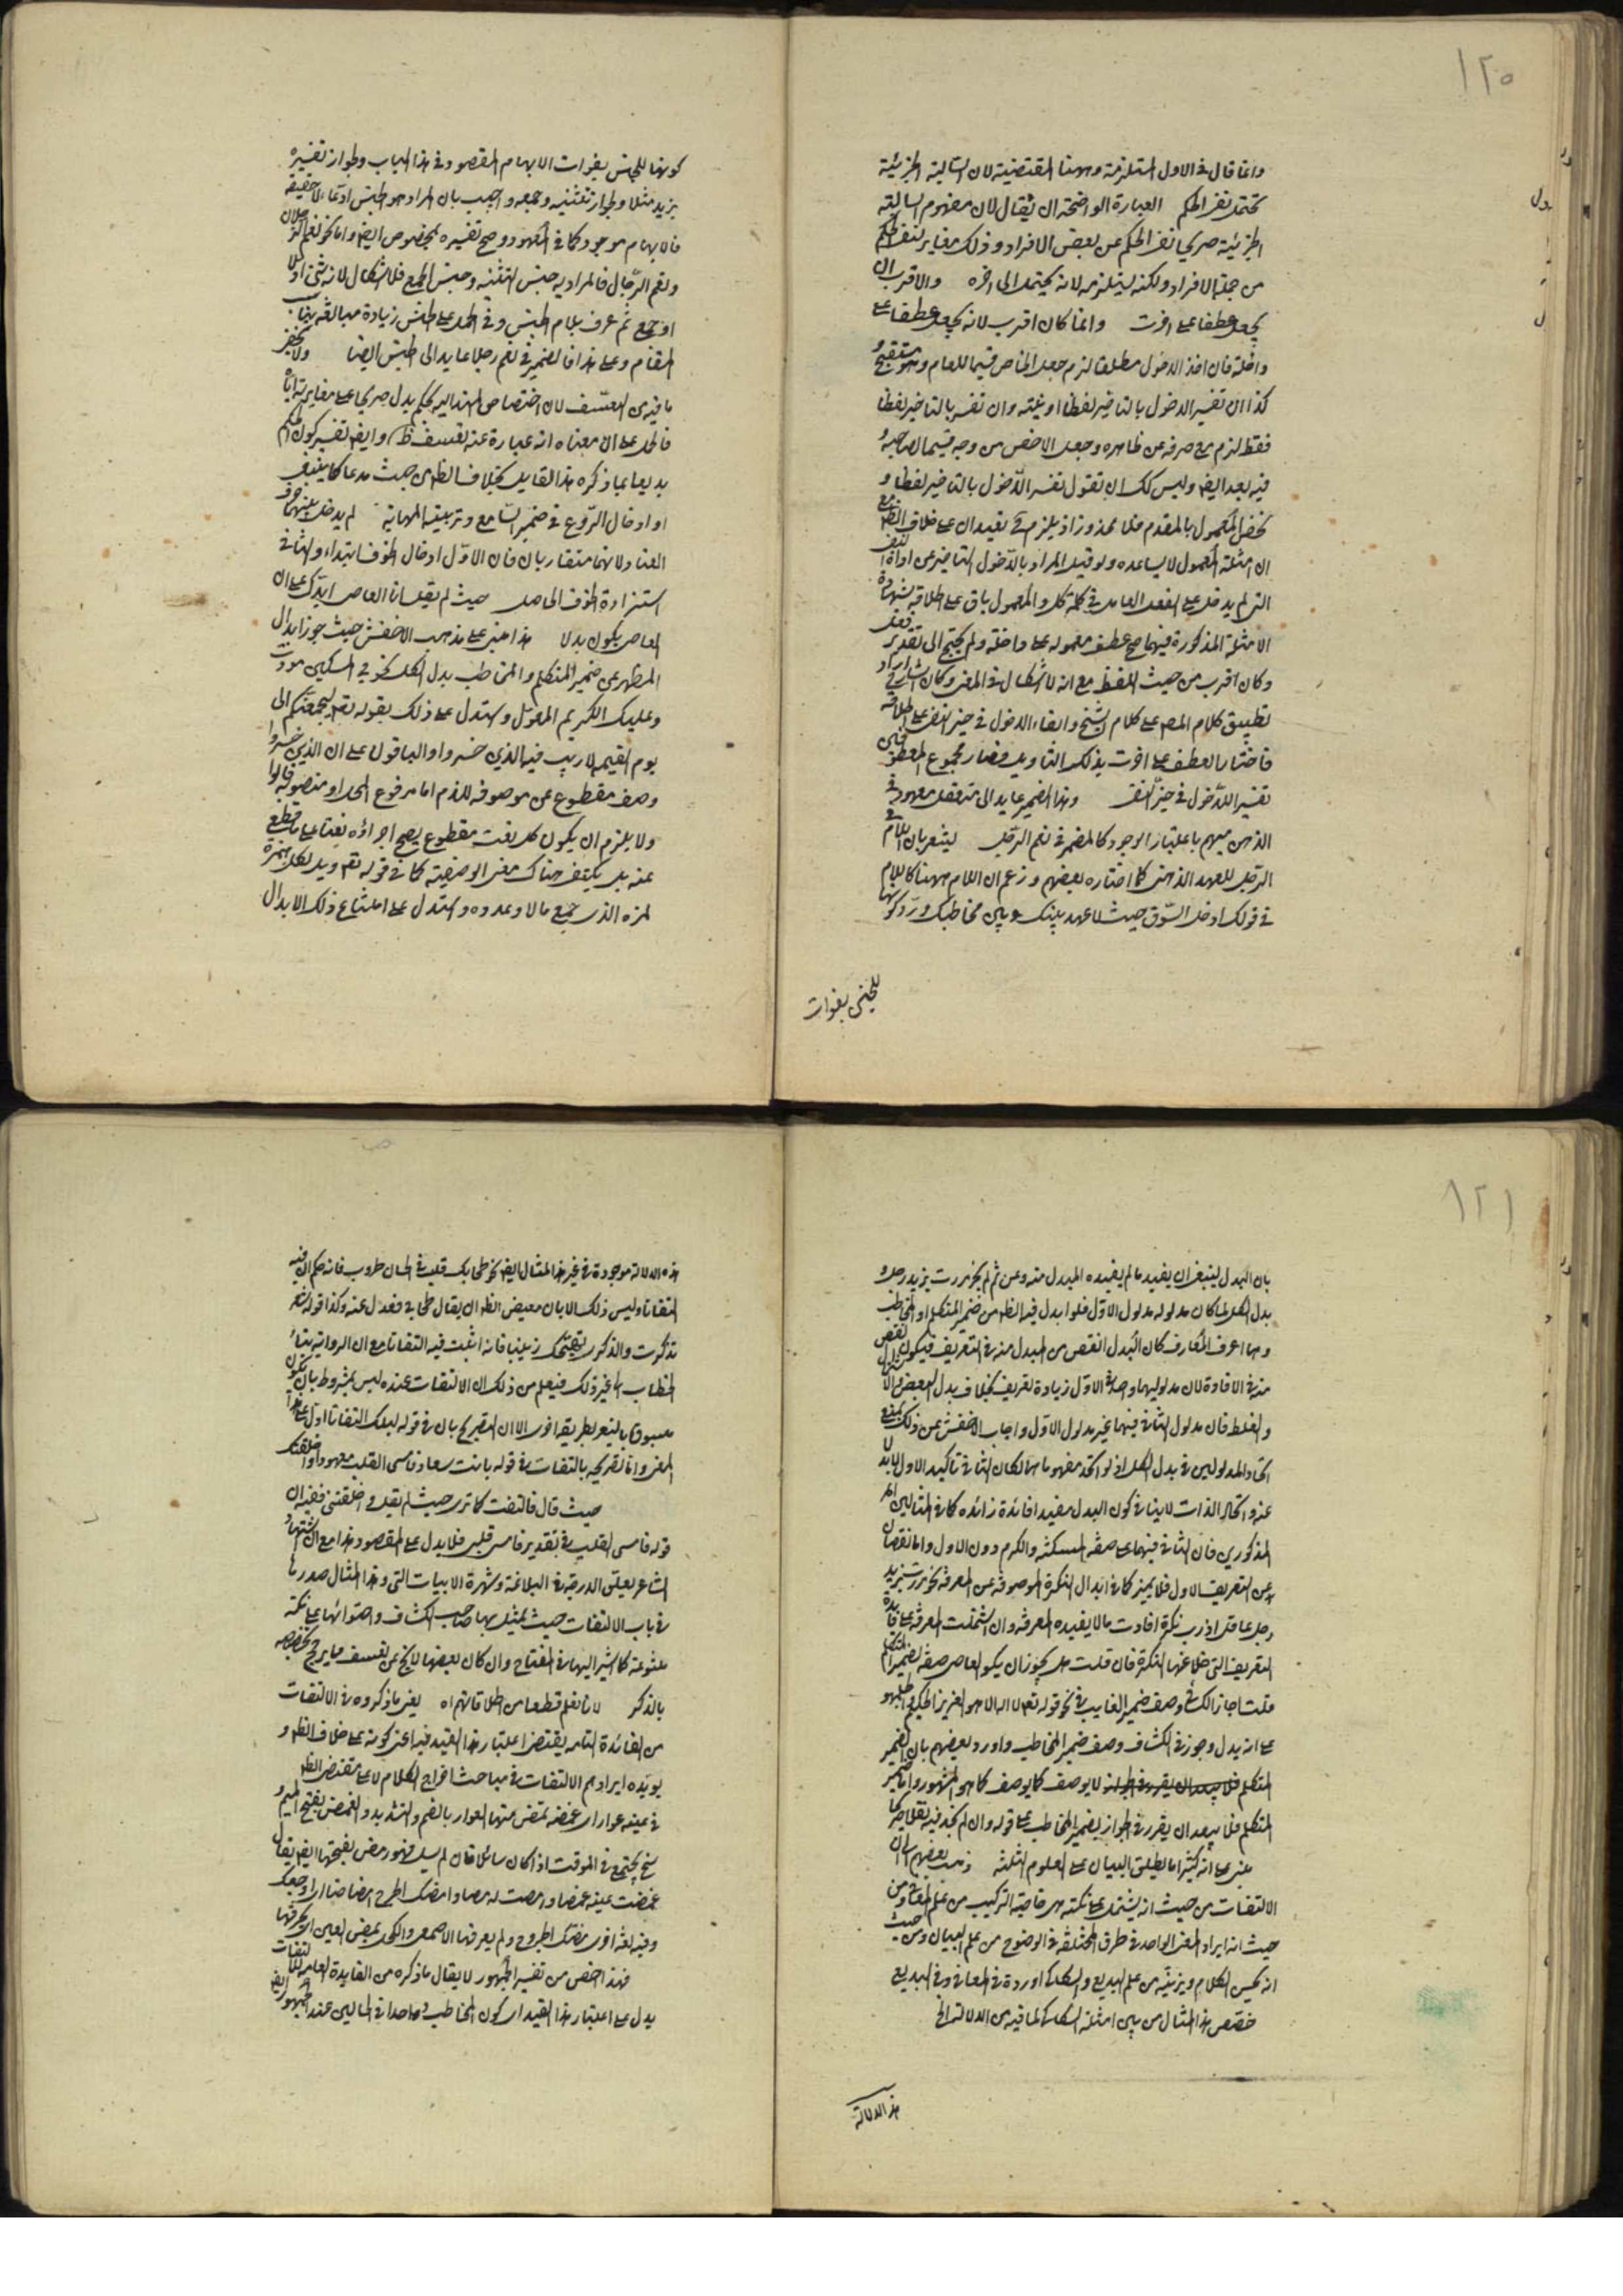 ١٢٠
وانما قال في الاول المستلزمة وههنا المقتضية لان السالبة الجزئية
تحتمل نفي الحكم العبارة الواضحة ان يقال لان مفهوم السالبة
الجزئية صريحا نفي الحكم عن بعض الافراد وذلك مغاير لنفي الحكم
من جملة الافراد ولكنه يستلزمه لانه يحتمل الى اخره والاقرب ان
يجعل عطفا على اخرت وانما كان اقرب لانه يجعل عطفا على
داخلة فان اخذ الدخول مطلقا لزم جعل الخاص قسيما للعام وهو مستقبح و
كذا ان تفسير الدخول بالتاخير لفظا او رتبة وان تفسر بالتاخير لفظا
فقط لزم مع صرفه عن ظاهره وجعل الاخص من وجه قسيما لصاحبه و
فيه بعد ايضا وليس لك ان تقول نفسر الدخول بالتاخير لفظا و
نخص المعمول بالمقدم فلا محذور اذ يلزم تقييدان على خلاف الظاهر مع
ان امثلة المعمول لا يساعده ولو قيل المراد بالدخول التاخير عن اداة النفي
التي لم يدخل على الفعل العامل في كلمة كل والمعمول باق على اطلاقه بشهادة
الامثلة المذكورة فيهما صح عطف معموله على داخلة ولم يحتج الى تقدير فعل
وكان اقرب من حيث اللفظ مع انه لا اشكال في المعنى وكان الشارح اراد
تطبيق كلام المص على كلام الشيخ وابقاء الدخول في حيز النفي على اطلاقه
فاختار العطف على اخرت بذلك التاويل فصار مجموع المعطوفين
تفسير اللدخول في حيز النفي وهذا الضمير عايد الى متعقل معهود في
الذهن مبهم باعتبار الوجود كالمضمر في نعم الرجل ليشعر بان اللام في
الرجل للعهد الذهني كما اختاره بعضهم وزعم ان اللام ههنا كاللام
في قولك ادخل السوق حيث لا عهد بينك وبين مخاطبك ورد كونها
للجنس بفوات
كونها للجنس بفوات الابهام المقصود في هذا الباب وبجواز تفسيره
بزيد مثلا وبجواز تثنيته وجمعه واجيب بان المراد هو الجنس ادعاء لا حقيقة
فالابهام موجود كما في المعهود وصح تفسيره بمخصوص ايضا واما نحو نعم الرجلان
ونعم الرجال فالمراد به جنس التثنية وجنس الجمع فلا اشكال لانه ثني اولا
او جمع ثم عرف بلام الجنس وفي الحمل على الجنس زيادة مبالغة يناسب
المقام وعلى هذا فالضمير في نعم رجلا عايد الى الجنس ايضا ولا يخفى
ما فيه من التعسف لان اختصاص المسند اليه بحكم يدل صريحا على مغايرته اياه
فالحمل على ان معناه انه عبارة عنه تعسف ظاهر وايضا تفسير كون الحكم
بديعا بما ذكره هذا القايل بخلاف الظاهر من حيث مدعا كما ينبغي
او ادخال الروع في ضمير السامع وتربية المهابة لم يدخل بينهما حرف
العناد لانهما متقاربان فان الاول ادخال الخوف ابتداء والثاني
استزادة الخوف الحاصل حيث لم يقل انا العاصي اتيتك على ان
العاصي يكون بدلا هذا مبني على مذهب الاخفش حيث جوز ابدال
المظهر من ضمير المتكلم والمخاطب بدل الكل نحو بي المسكين مررت
وعليك الكريم المعول واستدل على ذلك بقوله تعالى ليجمعنكم الى
يوم القيمة لا ريب فيه الذين خسروا والباقون على ان الذين خسروا
وصف مقطوع عن موصوفه للذم اما مرفوع المحل او منصوبه قالوا
ولا يلزم ان يكون كل نعت مقطوع يصح اجراؤه نعتا على ما قطع
عنه بل يكفي هناك معنى الوصفية كما في قوله تعالى ويل لكل همزة
لمزة الذي جمع مالا وعدده واستدل على امتناع ذلك الابدال
١٢١
بان البدل ينبغي ان يفيد ما لم يفيده المبدل منه ومن ثم لم يجز مررت بزيد رجل و
بدل الكل لما كان مدلوله مدلول الاول فلو ابدل فيه الظاهر من ضمير المتكلم او المخاطب
وهما اعرف المعارف كان البدل انقص من المبدل منه في التعريف فيكون انقص
منه في الافادة لان مدلوليهما واحد وفي الاول زيادة تعريف بخلاف بدل البعض والاشتمال
والغلط فان مدلول الثاني فيهما غير مدلول الاول واجاب الاخفش عن ذلك بمنع
اتحاد المدلولين في بدل الكل اذ لو اتحد مفهوماهما لكان الثاني تاكيد الاول لا بدلا
عنه واتحاد الذات لا ينافي كون البدل مفيدا فائدة زائدة كما في المثالين
المذكورين فان الثاني فيهما على صفة المسكنة والكرم دون الاول واما نقصان
عن التعريف الاول فلا يضر كما في ابدال النكرة الموصوفة عن المعرفة نحو مررت بزيد
رجل عاقل اذ رب نكرة افادت ما لا يفيده المعرفة وان اشتملت المعرفة على فائدة
التعريف التي خلا عنها النكرة فان قلت هل يجوز ان يكون العاصي صفة لضمير المتكلم
قلت اجاز الكسائي وصف ضمير الغايب في نحو قوله تعالى لا اله الا هو العزيز الحكيم والجمهور
على انه بدل وجوز في الكشاف وصف ضمير المخاطب واورد بعضهم بان الضمير
المتكلم لا يوصف كما يوصف كما هو المشهور واما ضمير
المتكلم فلا يبعد ان يقرر في الجواز بضمير المخاطب على قوله وان لم نجد فيه نقلا صريحا
مبني على انه كثيرا ما يطلق البيان على العلوم الثلثة ذهب بعضهم الى ان
الالتفات من حيث انه يشتمل على نكتة هي خاصية التركيب من علم المعاني ومن
حيث انه ايراد المعنى الواحد في طرق مختلفة في الوضوح من علم البيان ومن حيث
انه تحسين الكلام وتزيينه من علم البديع والسكاكي اورده في المعاني وفي البديع
خصص هذا المثال من بين امثلة السكاكي لما فيه من الدلالة الى
هذه الدلالة
هذه الدلالة موجودة في غير هذا المثال ايضا نحو طحا بك قلب في الحسان طروب فانه حكم ان فيه
التفاتا وليس ذلك الا بان مقتضى الظاهر ان يقال طحا بي فعدل عنه وكذا قوله شعر
تذكرت والذكرى تهيجك زينبا فانه اثبت فيه التفاتا مع ان الرواية بتاء
الخطاب الى غير ذلك فيعلم من ذلك ان الالتفات عنده ليس بمشروط بان يكون
مسبوقا بالتعبير بطريقة اخرى الا ان التصريح بان في قوله ليلك التفاتا اول على هذا
المعنى وانما تصريحه بالتفات في قوله بانت سعاد فامسى القلب معمودا واخلفتك
حيث قال فالتفت كما ترى حيث لم يقل و اخلفتني ففيه ان
قوله فامسى القلب في تقدير فامسى قلبي فلا يدل على المقصود هذا مع ان اشتهار
الشاعر بعلو الدرجة في البلاغة وشهرة الابيات التي وهذا المثال صدرها
في باب الالتفات حيث يمثل بها صاحب الكشاف واحتوائها على نكتة
متنوعة كما اشير اليها في المفتاح وان كان بعضها لا يخلو عن تعسف مما يرجح تخصيصه
بالذكر لانا نعلم قطعا من اطلاقاتهم اه يعني ما ذكروه في الالتفات
من الفائدة التامة يقتضي اعتبار هذا القيد فيه اعني كونه على خلاف الظاهر و
يؤيده ايرادهم الالتفات في مباحث اخراج الكلام لا على مقتضى الظاهر
في عينه عوار اي غمضة تمض منها العوار بالضم والتشديد والغمض بفتح الميم و
سخ يجتمع في الموق اذا كان سائلا فان لم يسل فهو رمص بفتحها ايضا يقال
غمضت عينه غمضا ورمصت له رمصا وامضك الجرح امضاضا اي اوجعك
وفيه لغة اخرى مضك الجرح ولم يعرفها الاصمعي والكحل يمض العين اي يحرقها
فهذا اخص من تفسير الجمهور لا يقال ما ذكره من الفايدة العامة للالتفات
يدل على اعتبار هذا القيد اي كون المخاطب واحدا في الحالين عند الجمهور ايضا